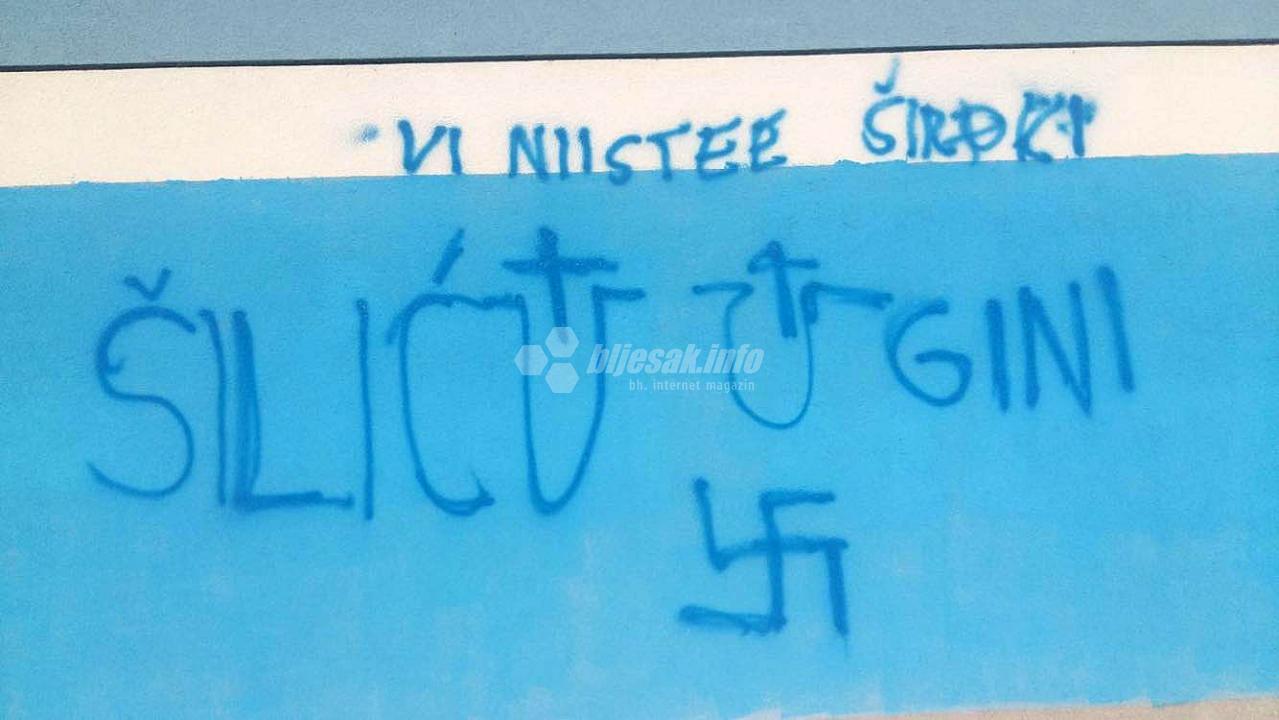 VI NIISTEE ŠIROKI
ŠILIĆU U GINI
bljesak.info
bh. internet magazin